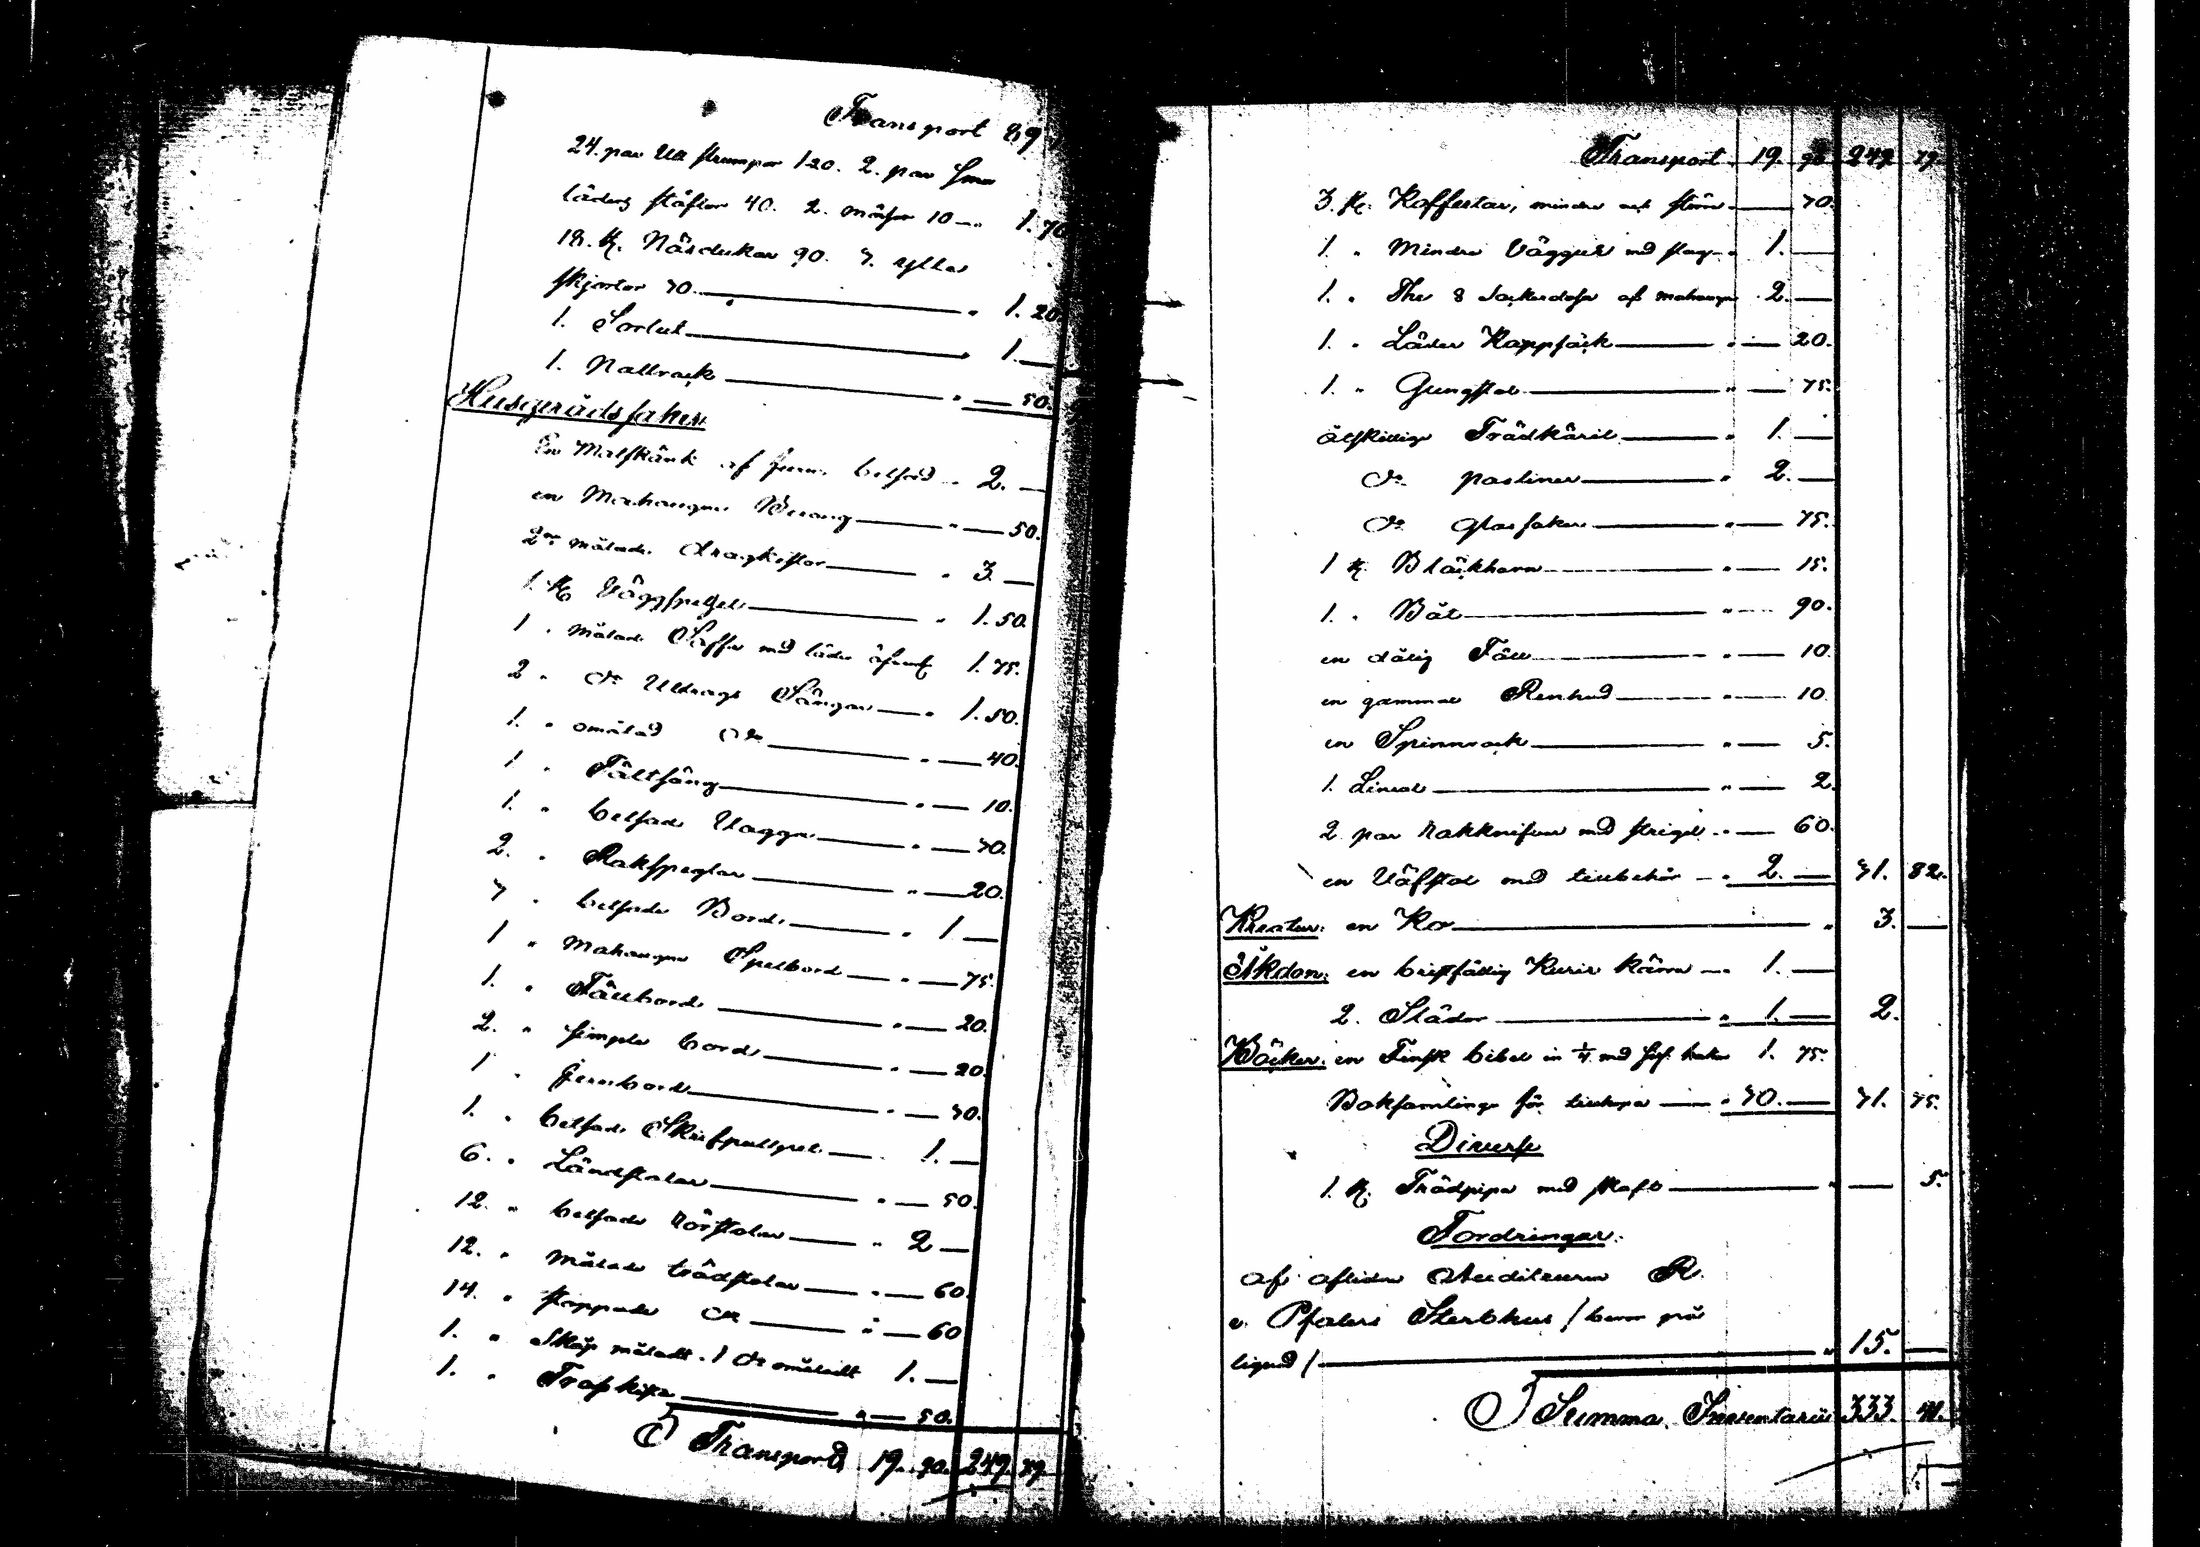 Transport 89
24. par Ull strumpor 120. 2. par Sma
läders stöflor 40. 2. mössor 10 — " 1. 70
18. st. Näsdukar 90. 7. yller
skjortor 70. — " 1. 20
1. Sortut — " 1. —
1. Nattrock — " — 50.
Husgerådssaker
En Matskänk af furu betsad " 2. —
en Mahaugne — " — 50.
2ne målade dragkistor — " 3. —
1. st Väggspegel — " 1. 50.
1 " målad Soffa med läder 1. 75.
2 " do Utdrags Sängar — " 1. 50.
1. " omålad do — " — 40.
1 " Fältsäng — " — 10.
1. " betsad Vagga — " — 70.
2. " Rakspeglar — " — 20.
7 " betsade Bord — " 1 —
1 " Mahaugne Spelbord — " — 75.
1. " Fällbord — " — 20.
2. " simpla bord — " — 20.
1 " Jernbord — " — 70.
1. " betsad Skrifpullpet — " 1. —
6. " Länstolar — " — 50.
12. " betsade rörstolar — " 2 —
12. " målade trädstolar — " — 60.
14. " stoppade do — " — 60
1. " Skåp måladt. 1 do omåladt 1. —
1. " — " — 50.
Transport 19. 90. 249. 79
Transport 19. 90 249 79
3. st. Koffertar, mindre och större — 70.
1 " Mindre Väggur med slag " 1. —
1. " The & Sockerdosa af mahaugne 2. —
1. " Läder Kappsäck — " — 20.
1. " Gungstol — " — 75.
åtskillige Trädkäril — " 1. —
do posliner — " 2. —
do glassaker — " — 75.
1 st. Bläckhorn — " — 15.
1. " Båt — " — 90.
en dålig Fäll — " — 10.
en gammal Renhud — " — 10.
en Spinnrock — " — 5.
1. Lineal — " — 2.
2. par rakknifvar med strigel " — 60.
en Väfstol med tillbehör — " 2. — 31. 82.
Kreatur: en Ko — " 3. —
Åkdon: en bristfällig Kurir Kärra — " 1. —
2. Slädor — " 1. — 2.
Böcker: en Finsk bibel in 1/4 med 1. 75.
Boksamlinge för — " 70. — 71. 75.
Diverse
1. st. Trädpipa med skaft — " — 5.
Fordringar.
af aflidne Auditeuren R.
v. Pfalers Sterbhus /
liqvid / — " 15. —
Summa Inventarii 333. 41.